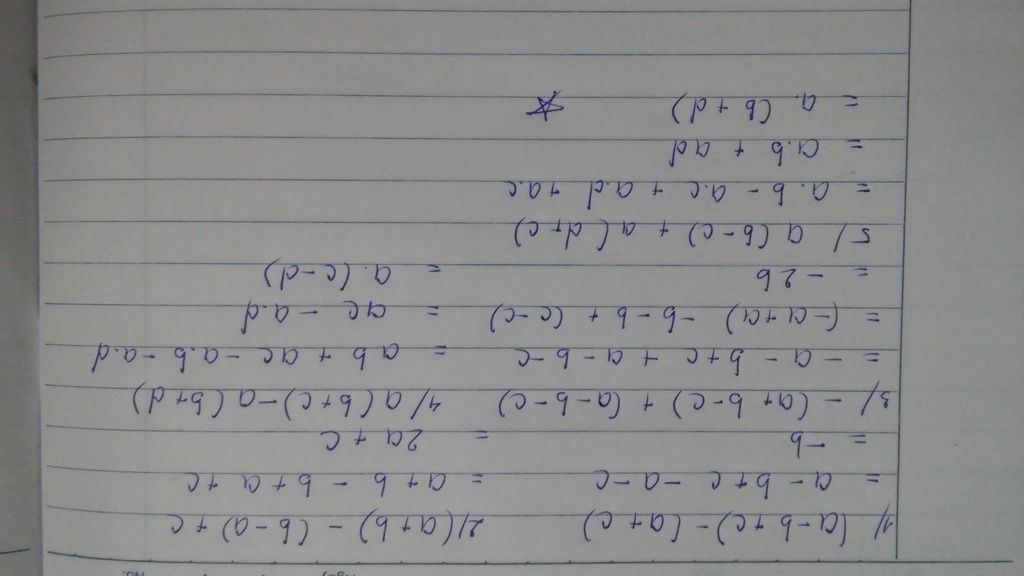 1/ (a-b+c)-(a+c) 2/ (a+b) - (b-a)+c
= a-b+c-a-c = a+b - b+a+c
= -b = 2a+c
3/ -(a+b-c) + (a-b-c) 4/ a(b+c)-a(b+d)
= -a-b+c+a-b-c = ab+ac-a.b-a.d
= (-a+a) -b-b+(c-c) = ac-a.d
= -2b = a.(c-d)
5/ a(b-c) + a(d+c)
= a.b - a.c + a.d + a.c
= a.b + ad
= a.(b+d)